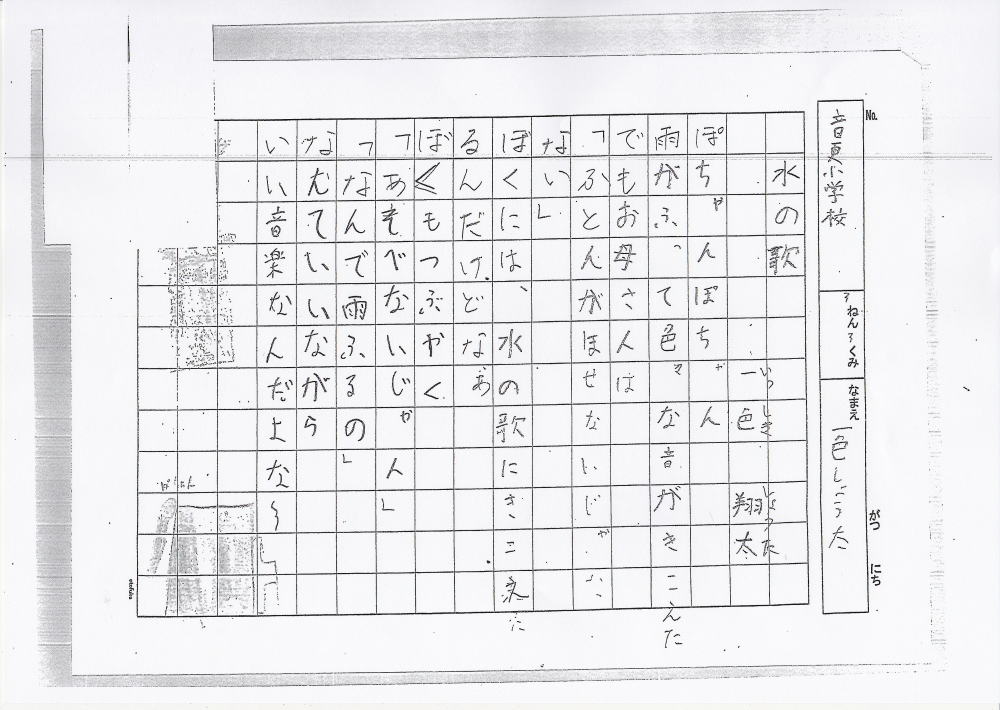 No.
音更小学校
3ねん3くみ
なまえ 一色しょう太
がつ にち
水の歌
一色 翔太
いっしき しょうた
ぽちゃんぽちゃん
雨がふって色々な音がきこえた
でもお母さ人は
「ふとんがほせないじゃ
ない」
ぼくには、水の歌にきこえた
るんだけどなあ
ぼくもつぶやく
「あそべないじゃん」
「なんで雨ふるの」
なんていいながら
いい音楽なんだよな〜